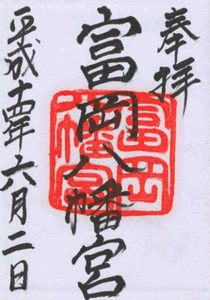 奉拝
富岡八幡宮
富岡八幡宮
平成十四年六月二日